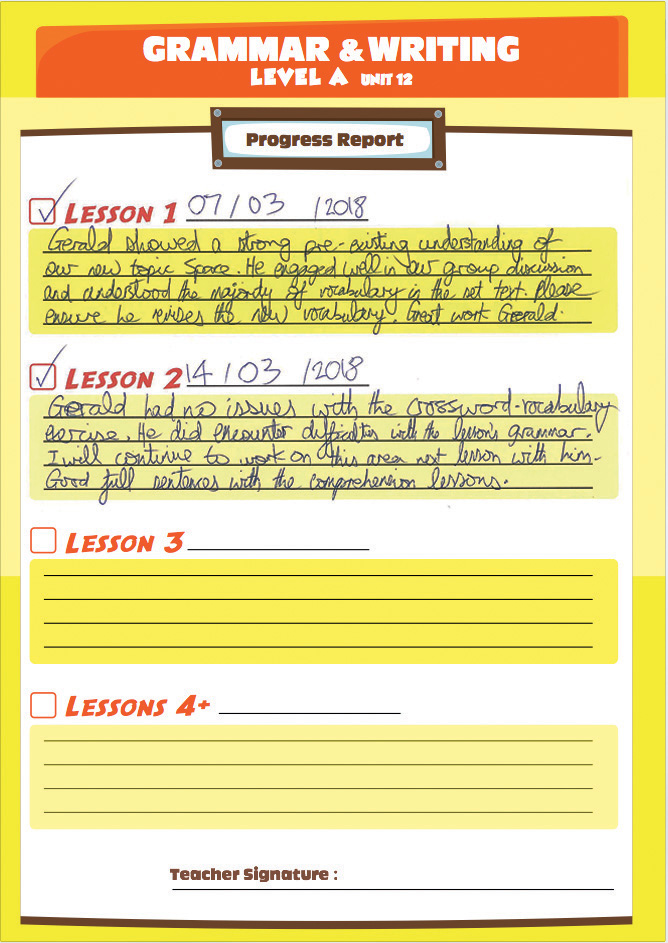 GRAMMAR & WRITING
LEVEL A UNIT 12
Progress Report
LESSON 1 07/03/2018
Gerald showed a strong pre-existing understanding of
our new topic Space. He engaged well in our group discussion
and understood the majority of vocabulary in the set text. Please
ensure he revises the new vocabulary. Great work Gerald.
LESSON 2 14/03/2018
Gerald had no issues with the crossword-vocabulary
exercise. He did encounter difficulties with the lesson's grammar.
I will continue to work on this area next lesson with him.
Good full sentences with the comprehension lessons.
LESSON 3
LESSONS 4+
Teacher Signature :